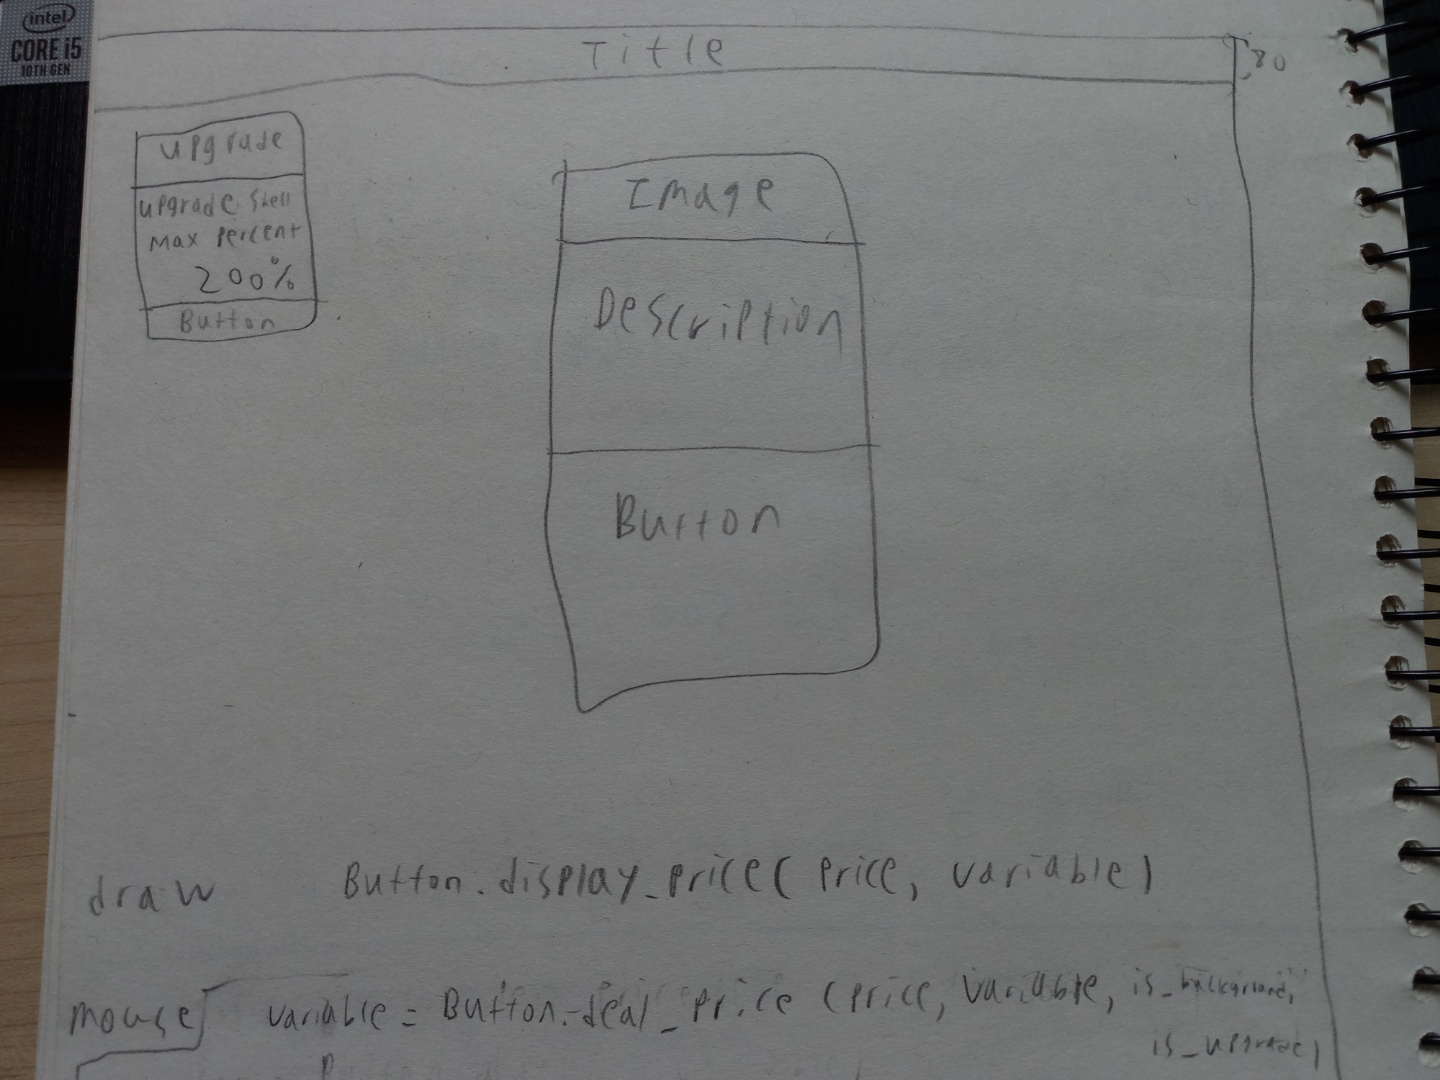 intel
CORE i5
10TH GEN
Title
80
upgrade
upgrade shell
Max percent
200%
Button
Image
Description
Button
draw Button.display_price( price, variable)
mouse variable = Button.deal_price (price, variable, is_background,
is_upgrade)